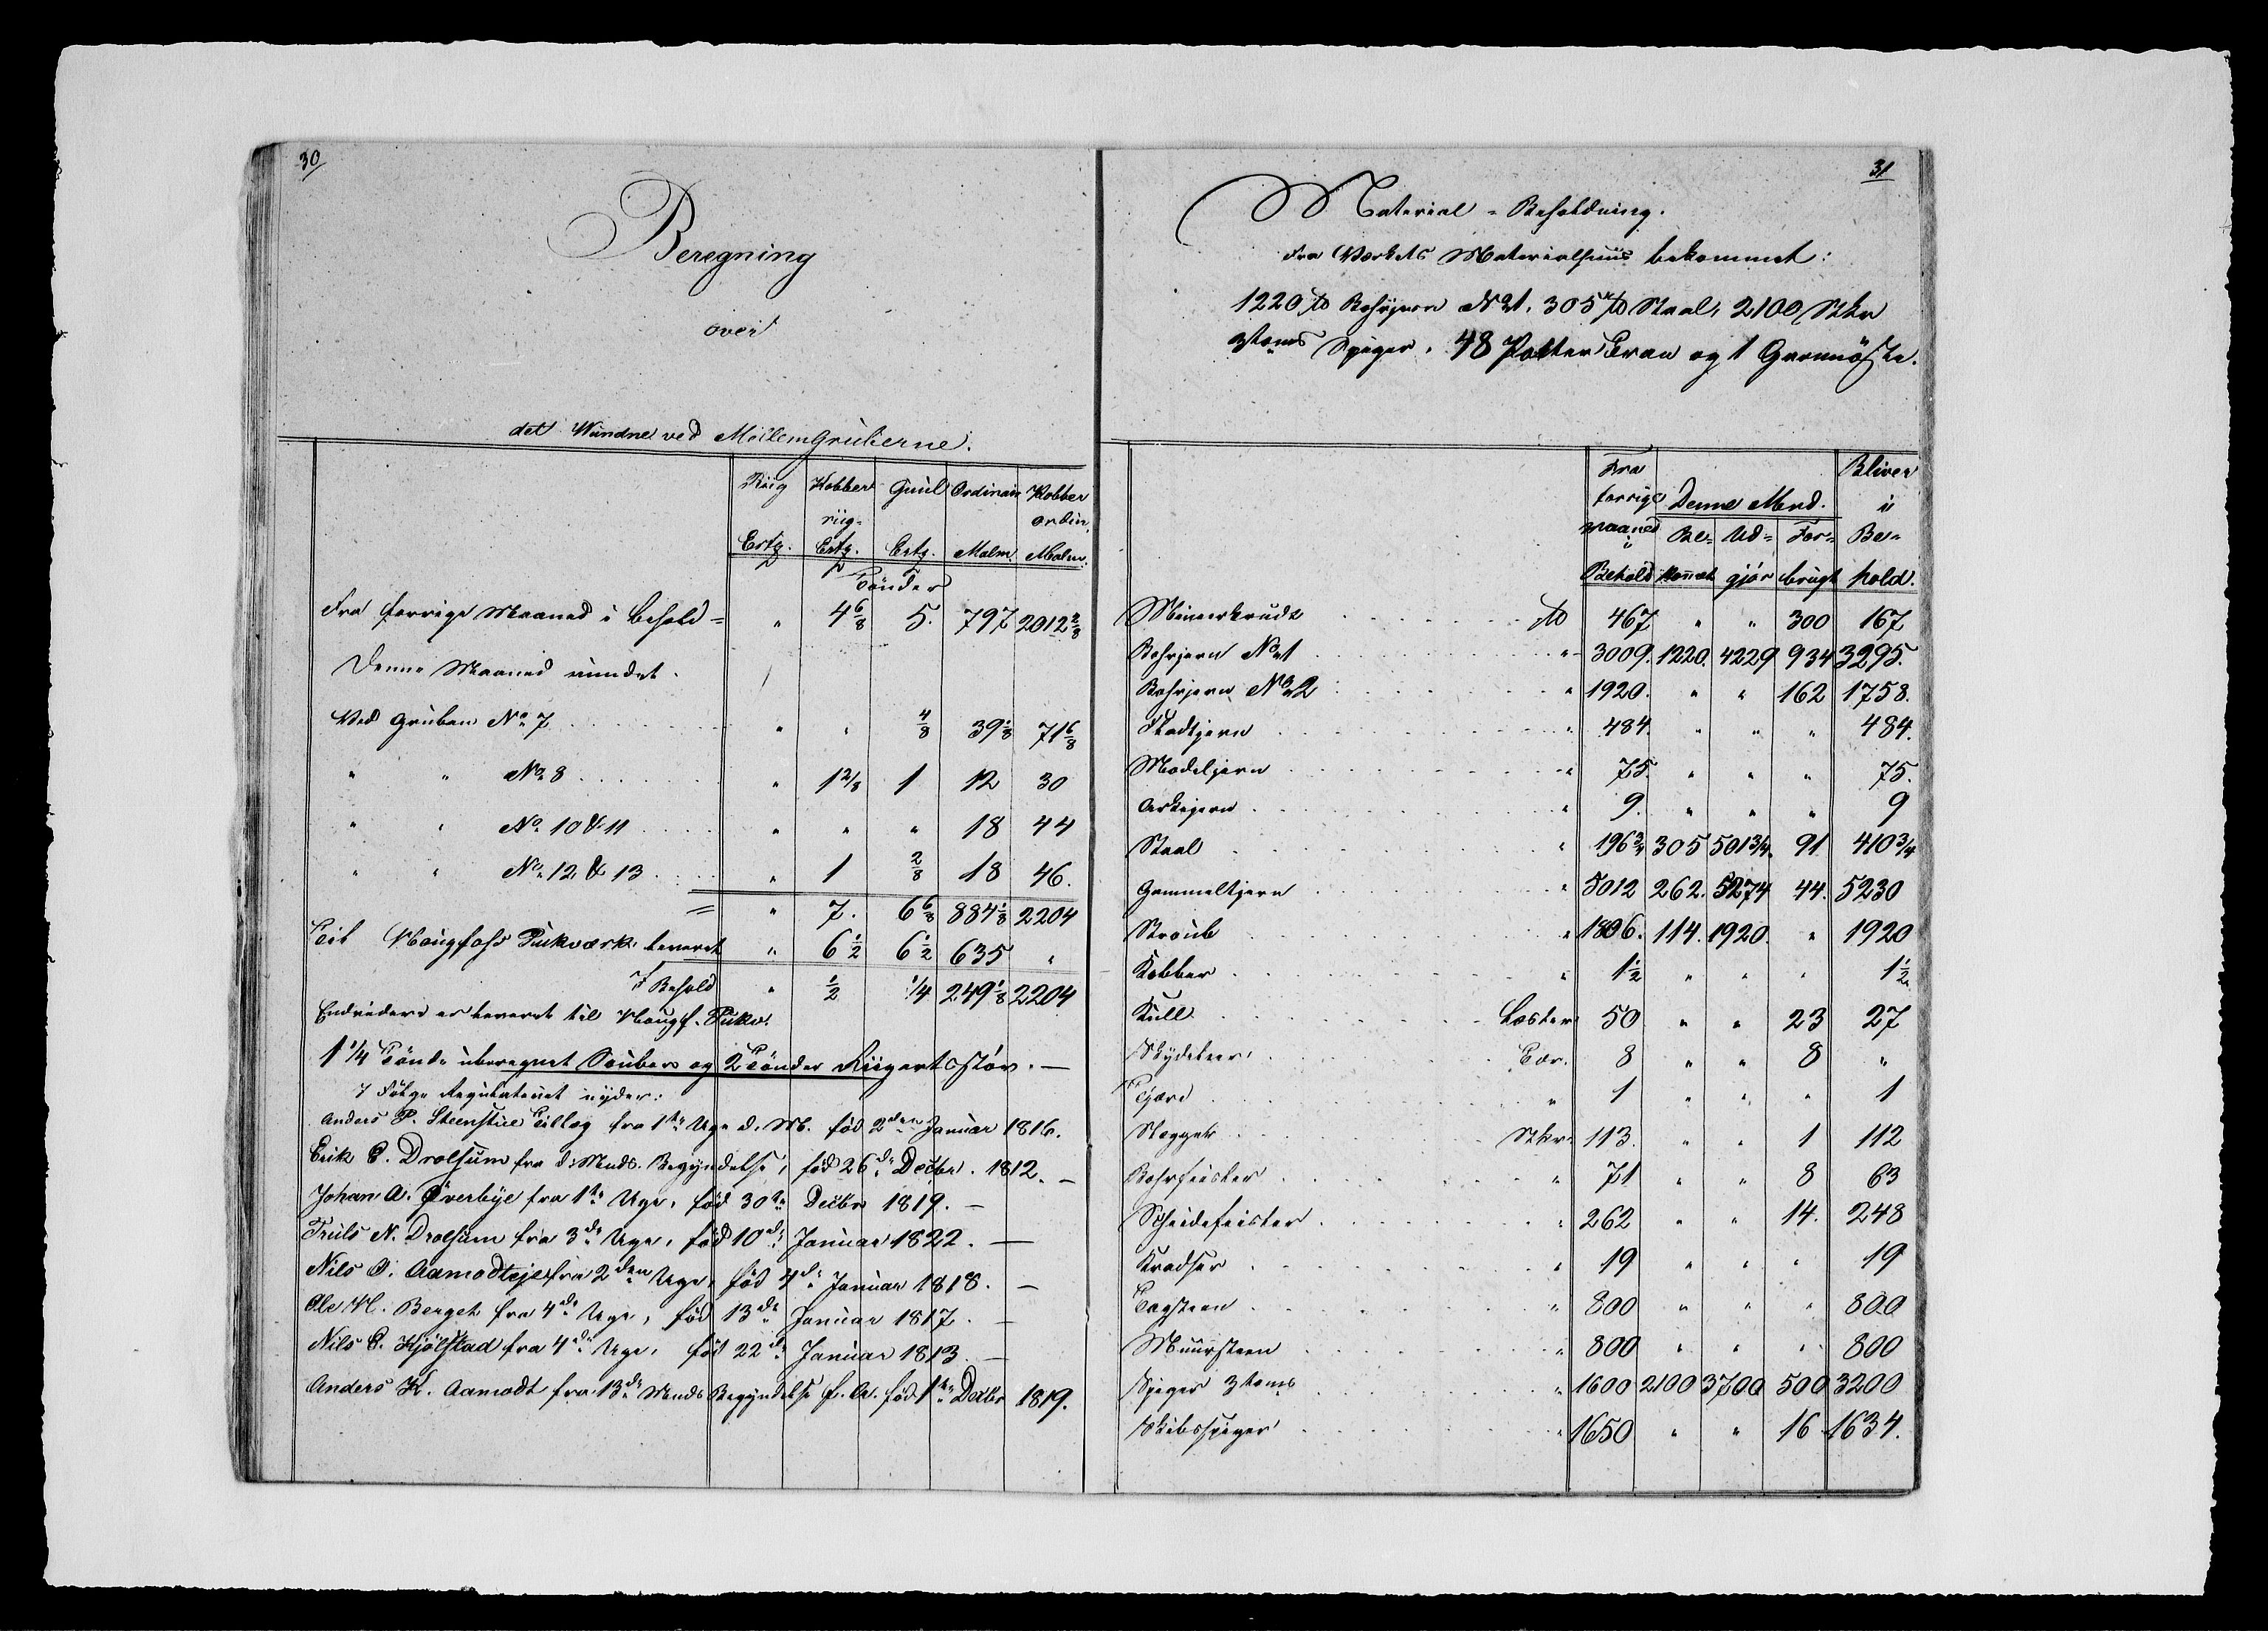 30
Beregning
over
det Wundne ved Mellem Gruberne.
Riig Ertz. Kobber riig- Ertz. Guul Ertz. Ordinair Malm. Kobber ordin. Malm.
Tönder
Fra forrige Maaned i Behold = " 4 6/8 5. 797 2012 2/8
Denne Maaned vundet.
Ved Gruben No 7 " " 4/8 39 1/8 71 6/8
" " No 8 " 1 2/8 1 12 30
" " No 10 & 11 " " " 18 44
" " No 12 & 13 " 1 2/8 18 46.
= " 7. 6 6/8 884 1/8 2204
Til Hougfoss Pukværk leveret " 6 1/2 6 1/2 635 "
I Behold " 1/2 1/4 249 1/8 2204
Endvidere er leveret til Hougf. Pukv.
1 1/4 Tönde uberegnet Soubers og 2 Tönder Riigertsstöv. —
I Fölge Regulativet nyder:
Anders P. Steenstue Tillæg fra 1ste Uge d. M. föd 2den Januar 1816.
Erik E. Drolsum fra d: Mnds. Begyndelse, föd 26de Decbr. 1812. —
Johan A. Øverbye fra 1ste Uge, föd 30te Decbr 1819. —
Truls N. Drolsum fra 3de Uge, föd 10de Januar 1822. —
Nils O. Aamodteje fra 2den Uge, föd 4de Januar 1818. —
Ole H. Berget fra 4de Uge, föd 13de Januar 1817. —
Nils E. Kjölstad fra 4de Uge, föd 22de Januar 1813. —
Anders K. Aamodt fra 13de Mnds Begyndelse f. A. föd 1ste Decbr 1819.
31
Material-Beholdning.
Fra Værkets Materialhuus bekommet:
1220 ℔ Borhjern No 1, 305 ℔ Staal, 2100 Stkr
3toms Spiger, 48 Potter Tran og 1
Fra forrige Maaned i Behold Denne Mnd. Be- kommet Ud- gjör For- brugt Bliver i Be- hold.
Minerkrudt ℔ 467 " " 300 167
Bohrjern No 1 " 3009. 1220. 4229 934 3295.
Bohrjern No 2 " 1920. " " 162 1758.
Stadtjern " 484. " " " 484.
Modeljern " 75. " " " 75.
" 9. " " " 9
Staal " 196 3/4 305 501 3/4. 91 410 3/4
Gammeltjern " 5012 262. 5274 44. 5230
Stroub " 1806. 114. 1920. " 1920
Kobber " 1 1/2 " " " 1 1/2
Kull Læster 50 " " 23 27
Tær. 8 " " 8 "
Tjære " 1 " " " 1
Stkr. 113. " " 1 112
Bohrfeister " 71 " " 8 63
Scheidefeister " 262 " " 14. 248
Kradser " 19 " " " 19
Tagsteen " 800 " " " 800
Muursteen " 800 " " " 800
Spiger 3toms " 1600 2100 3700 500 3200
Skibsspiger " 1650 " " 16 1634.